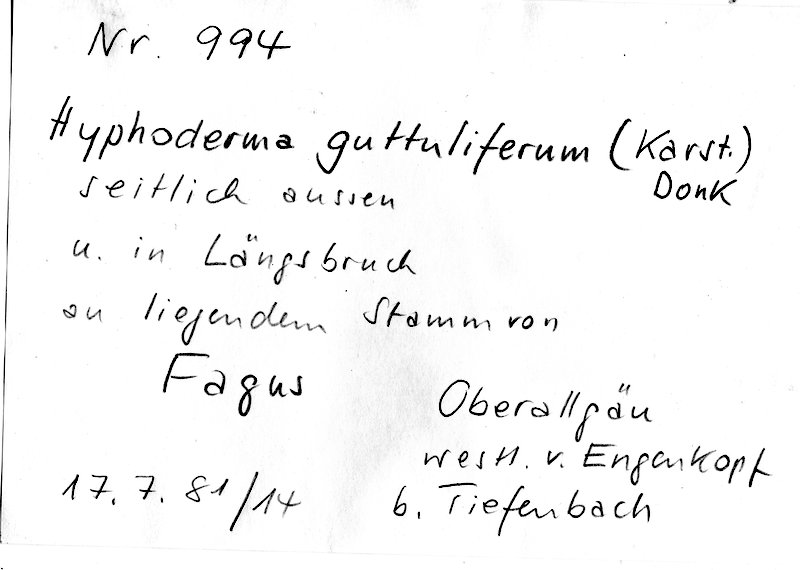 Nr. 994
Hyphoderma guttuliferum (Karst.)
Donk
seitlich aussen
u. in Längsbruch
an liegendem Stamm von
Fagus
Oberallgäu
westl. v. Engenkopf
b. Tiefenbach
17. 7. 81/14